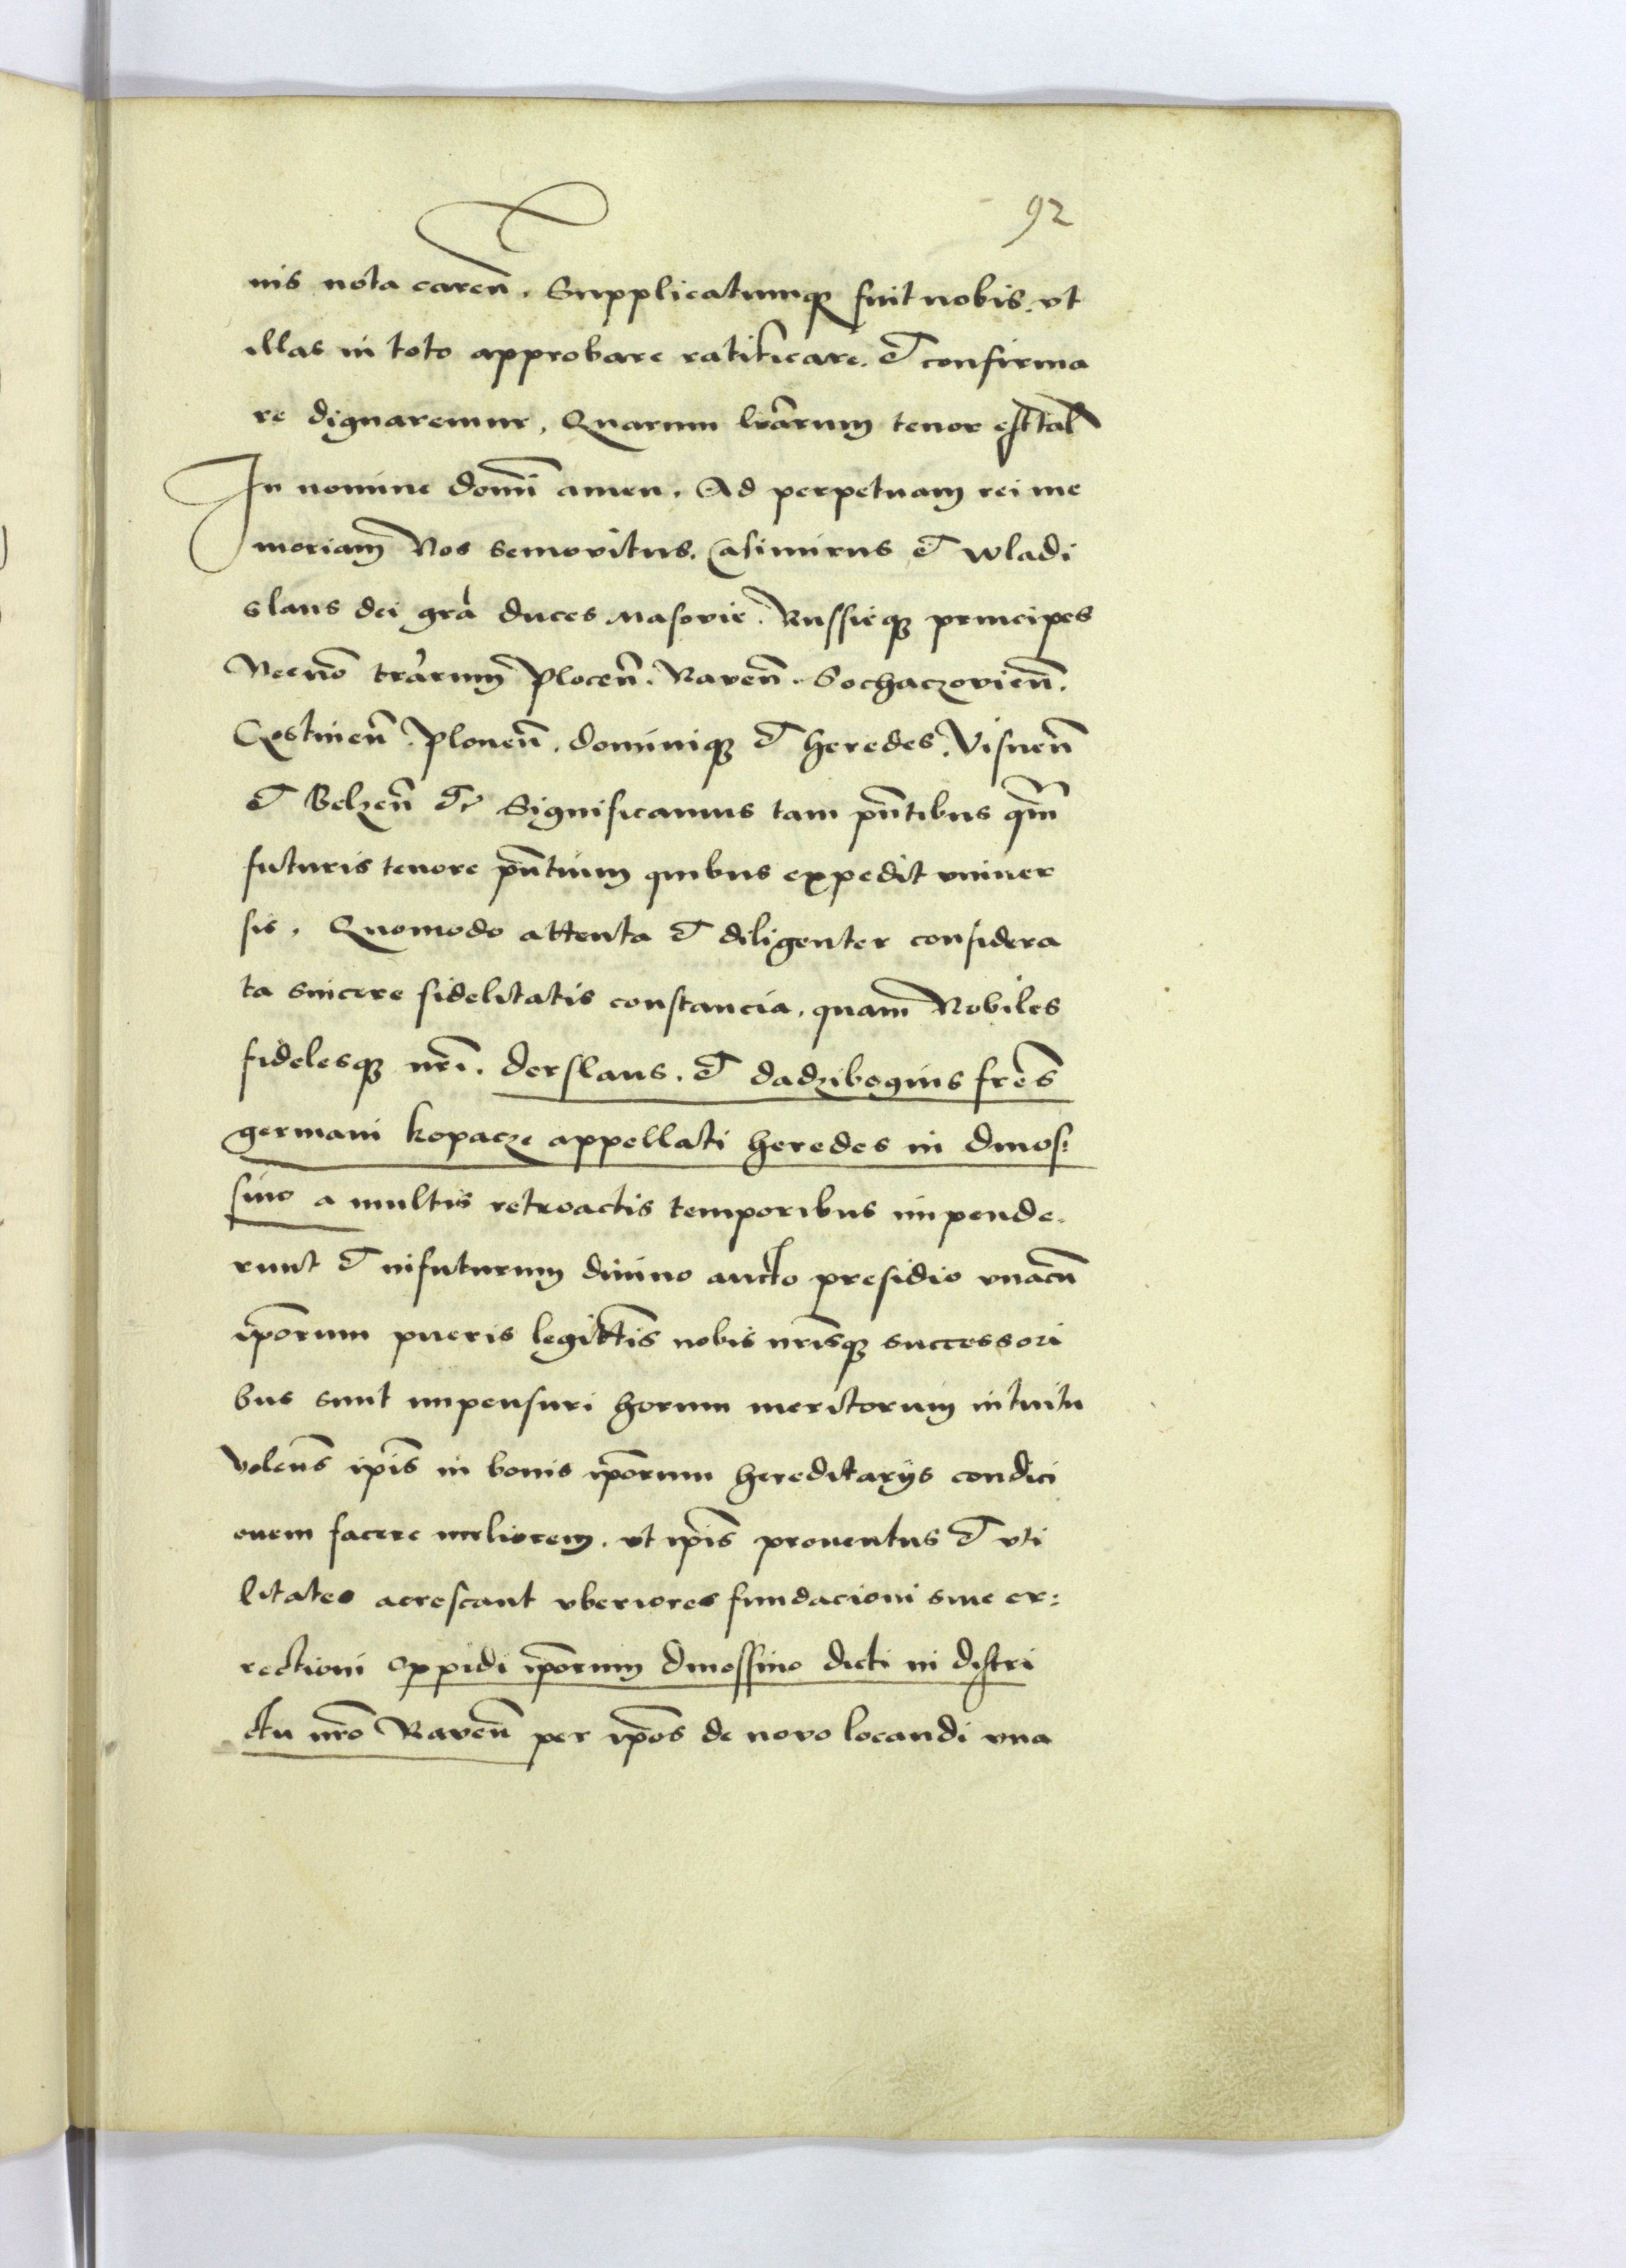 92
nis nota caren̄. Supplicatumqꝫ fuit nobis. vt
illas in toto approbare ratificare. et confirma
re dignaremur, Quarum lr̄arum tenor est tal̄
In nomine domī amen. Ad perpetuam rei me
moriam Nos Semovitus. Casimirus et wladi
slaus dei gr̄a duces Masovie. Russieqꝫ principes
Necnō tr̄arum Plocen̄. Raven̄. Sochaczovien̄.
Gostinen̄. Plonen̄. dominiqꝫ et heredes. Visnen̄
et Belzen̄ etc̄ Significamus tam pn̄tibus qm̄
futuris tenore pn̄tium quibus expedit vniuer
sis. Quomodo attenta et diligenter considera
ta sincere fidelitatis constancia, quam Nobiles
fidelesqꝫ nr̄i. derslaus. et dadzibogius fr̄es
germani kopacze appellati heredes in dmos:
sino a multis retroactis temporibus impende.
runt et infuturum diuino aucto presidio vnacū
ip̄orum pueris legittīs nobis nr̄isqꝫ successori
bus sunt impensuri horum meritorum intuitu
volen̄s ip̄is in bonis ip̄orum hereditarijs condici
onem facere meliorem. vt ip̄is prouentus et vti
litates acrescant vberiores fundacioni siue er:
rectioni oppidi ip̄orum dmossino dicti in distri
ctu nr̄o Raven̄ per ip̄os de novo locandi vna